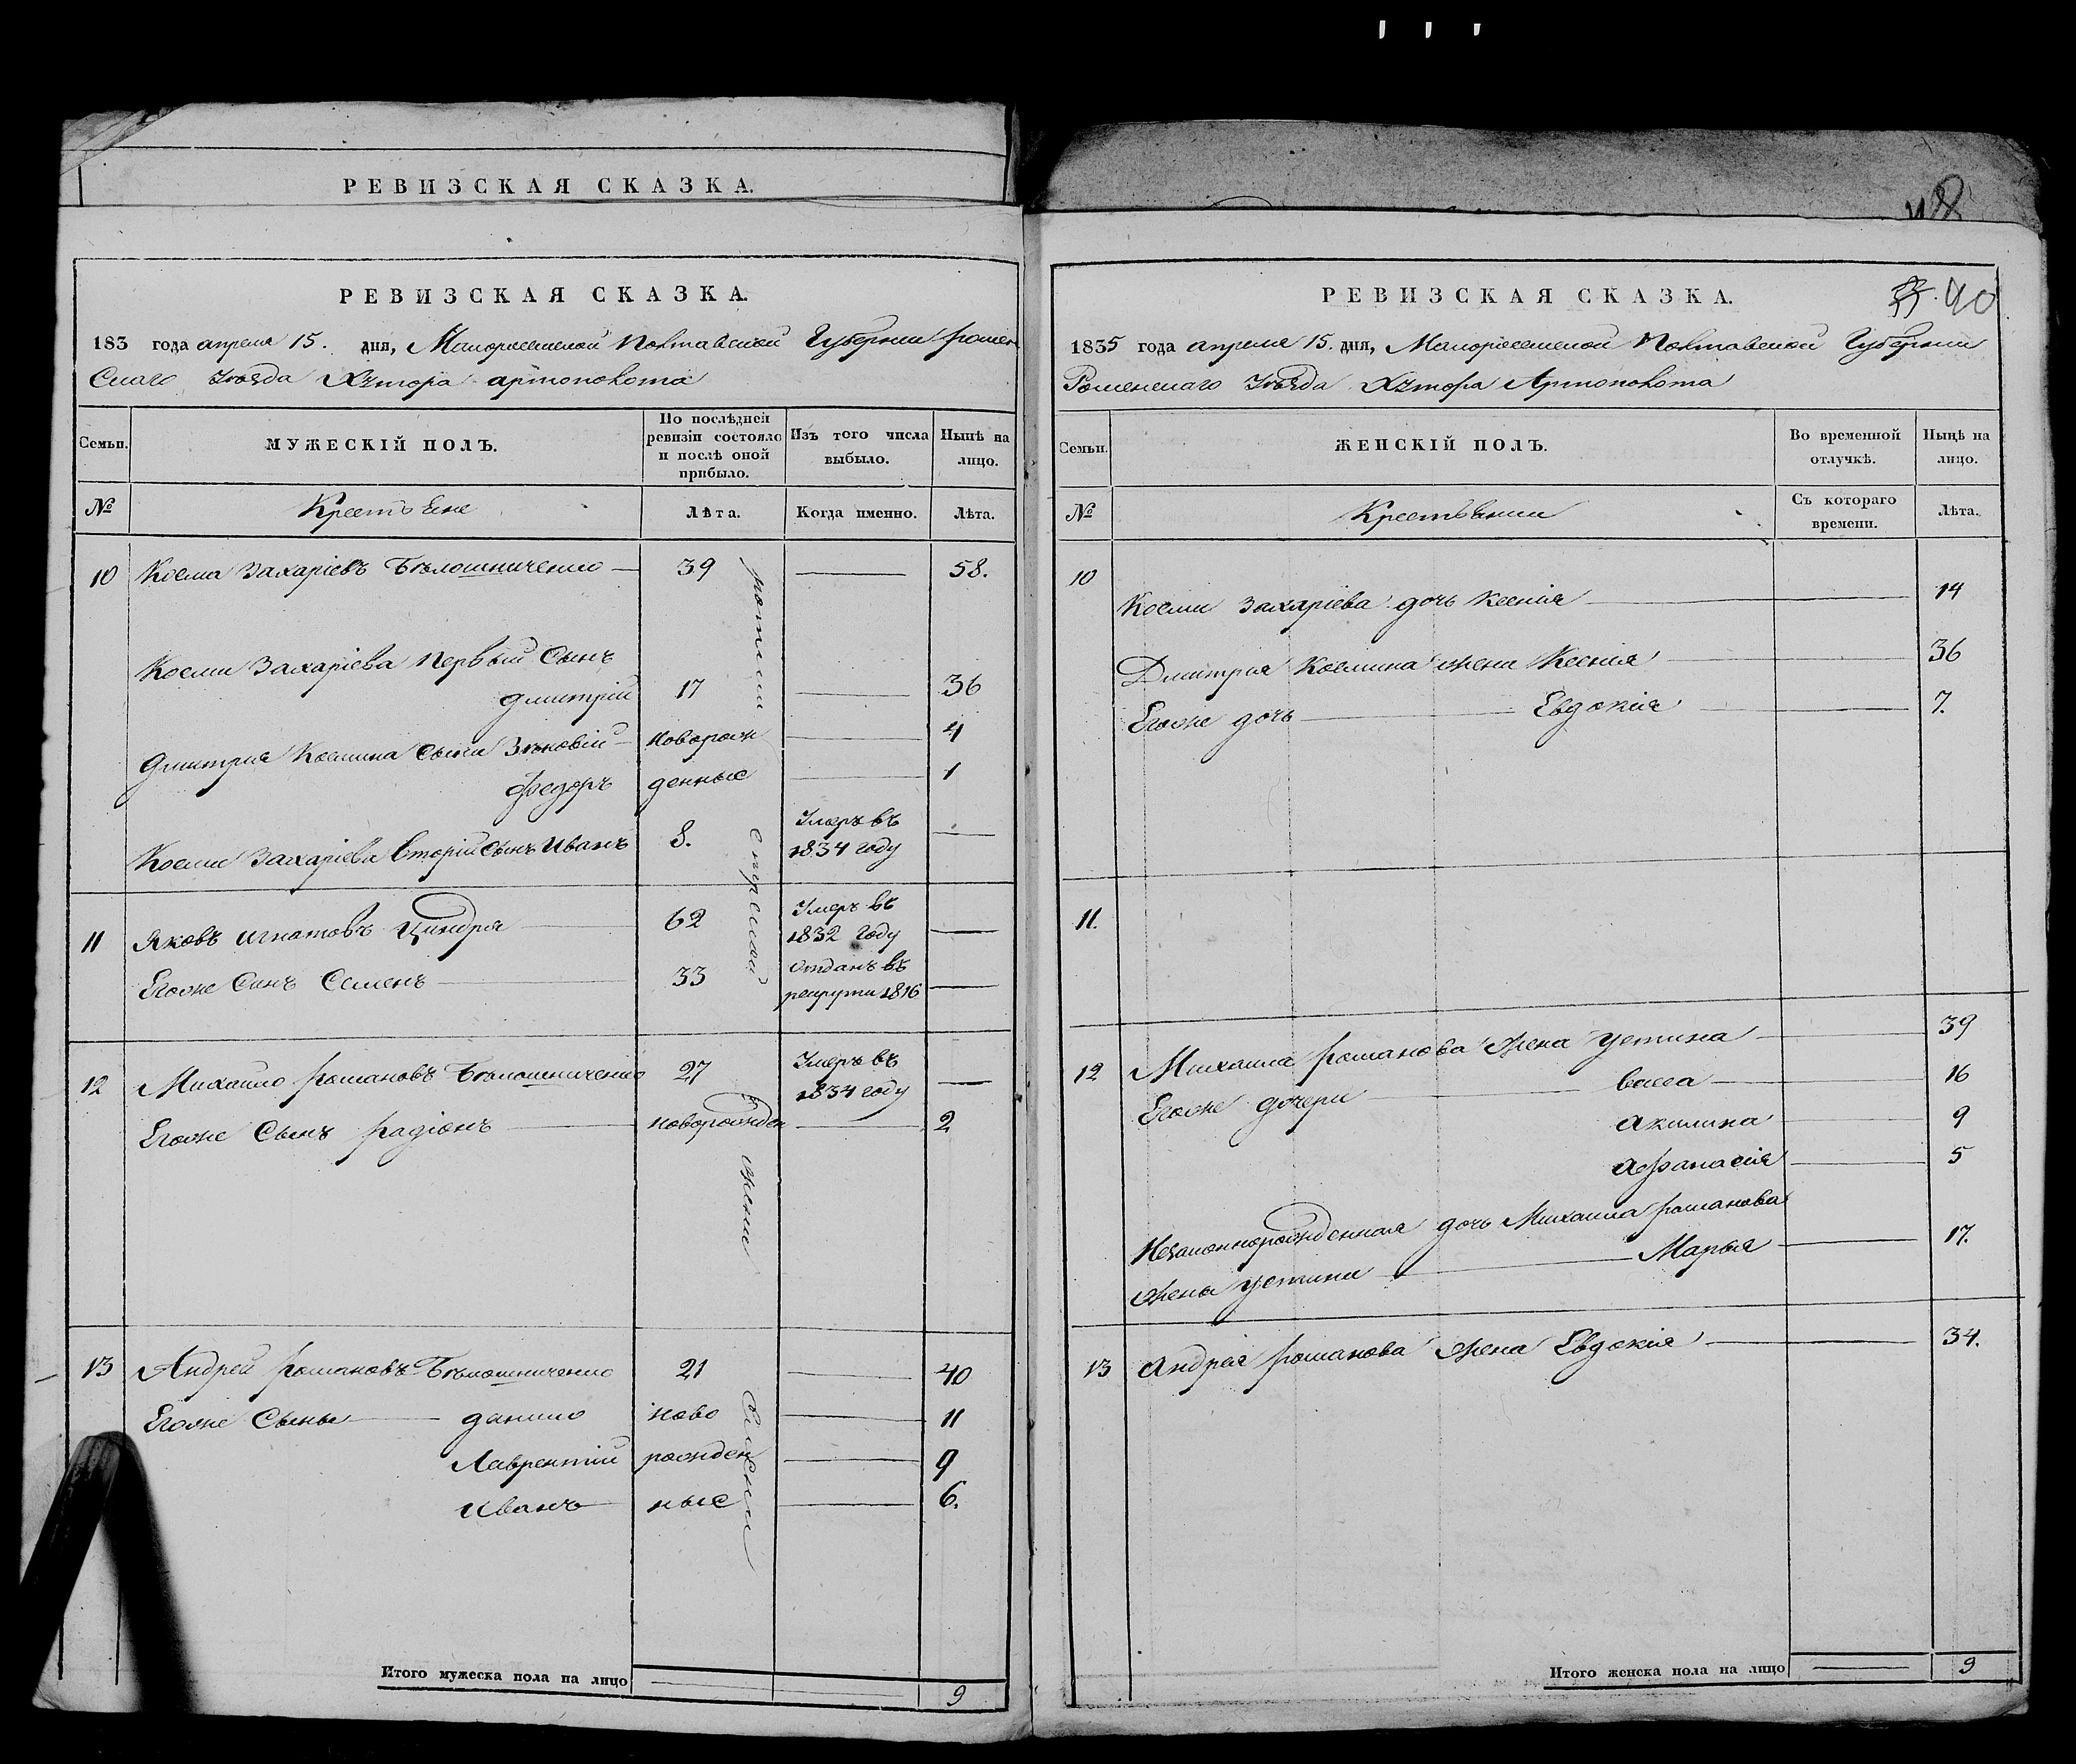 РЕВИЗСКАЯ СКАЗКА.
РЕВИЗСКАЯ СКАЗКА.
183 года апреля 15. дня, Малоросейской Полтавской Губернии ромен
Скаго Уезда Хутора артополота
Семьи.
МУЖЕСКІЙ ПОЛЪ.
По послѣдней ревизіи состояло и послѣ оной прибыло.
Изъ того числа выбыло.
Нынѣ на лицо.
№
Крестьяне
Лѣта.
Когда именно.
Лѣта.
10 Косма Захаріевъ Бѣлошниченко 39 58.
Косми Захаріева Первый Сынъ
дмитрій 17 36
дмитрия Космина Сыни Зѣновій новорож 4
федоръ денные 1
Косми Захаріева Вторій Сынъ Иванъ 8. Умеръ въ 1834 году
11 Яковъ Игнатовъ Циндря 62 Умеръ въ 1832 году
Егоже Синъ Семенъ 33 отданъ въ рекрути 1816
12 Михаило романовъ Бѣлошниченко 27 Умеръ въ 1834 году
Егоже Сынъ радіонъ новорожден 2
13 Андрей романовъ Бѣлошниченко 21 40
Егоже Сыны данило ново 11
Лаврентій рожден 9
Иванъ ные 6.
Итого мужеска пола на лицо 9
48
РЕВИЗСКАЯ СКАЗКА.
40
1835 года апреля 15. дня, Малоросейской Полтавской Губернии
Роменскаго Уезда Хутора Артополота
Семьи.
ЖЕНСКІЙ ПОЛЪ.
Во временной отлучкѣ.
Нынѣ на лицо.
№
Крестьянки
Съ котораго времени.
Лѣта.
10
Косми Захаріева дочь Ксенія 14
Дмитрия Космина жена Ксенія 36
Егоже дочь Евдокія 7.
11.
12 Михаила романова Жена Устина 39
Егоже дочери васса 16
акилина 9
афанасія 5
Незаконнорожденная дочь Михаила романова
Жены Устини Марья 17.
13 андрея романова Жена Евдокія 34.
Итого женска пола на лицо 9